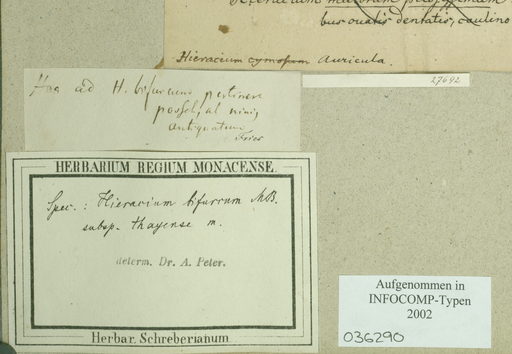 bus ovatis dentatis, caulino
Hieracium cymosum Auricula.
27692
Hoc ad H. bifurcum pertinere
posset, at nimis
antiquatum
Fries
HERBARIUM REGIUM MONACENSE.
Spec.: Hieracium bifurcum MB.
subsp. thayense m.
determ. Dr. A. Peter.
Herbar. Schreberianum
Aufgenommen in
INFOCOMP-Typen
2002
036290